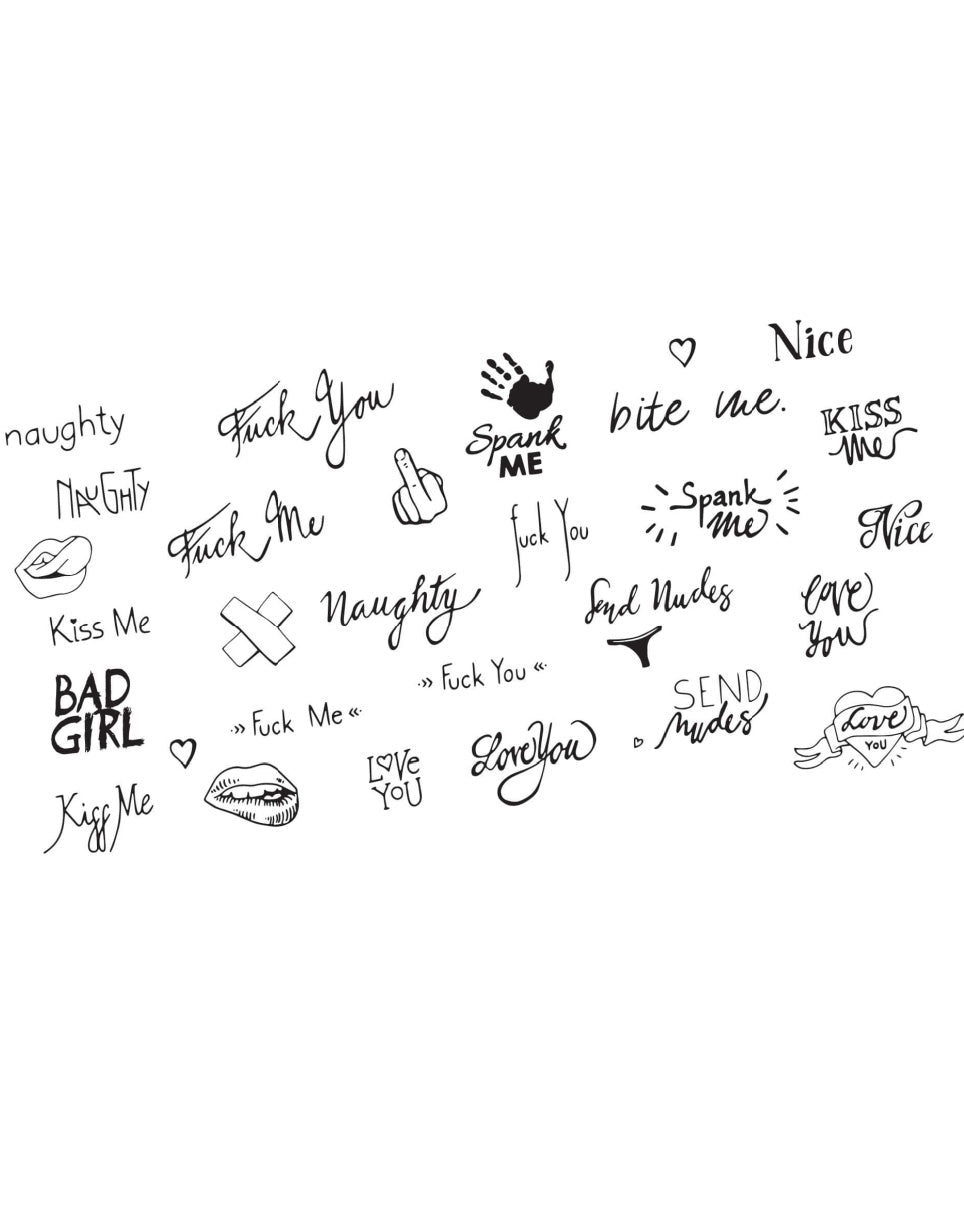 Nice
naughty
Fuck You
Spank
ME
bite me.
KISS
me
NAUGHTY
Fuck Me
fuck You
Spank
Me
Nice
Kiss Me
Naughty
Send Nudes
love
You
BAD
GIRL
·»› Fuck Me «·
·»› Fuck You «·
SEND
nudes
Love
YOU
Kiss Me
LOVe
YOU
Love You